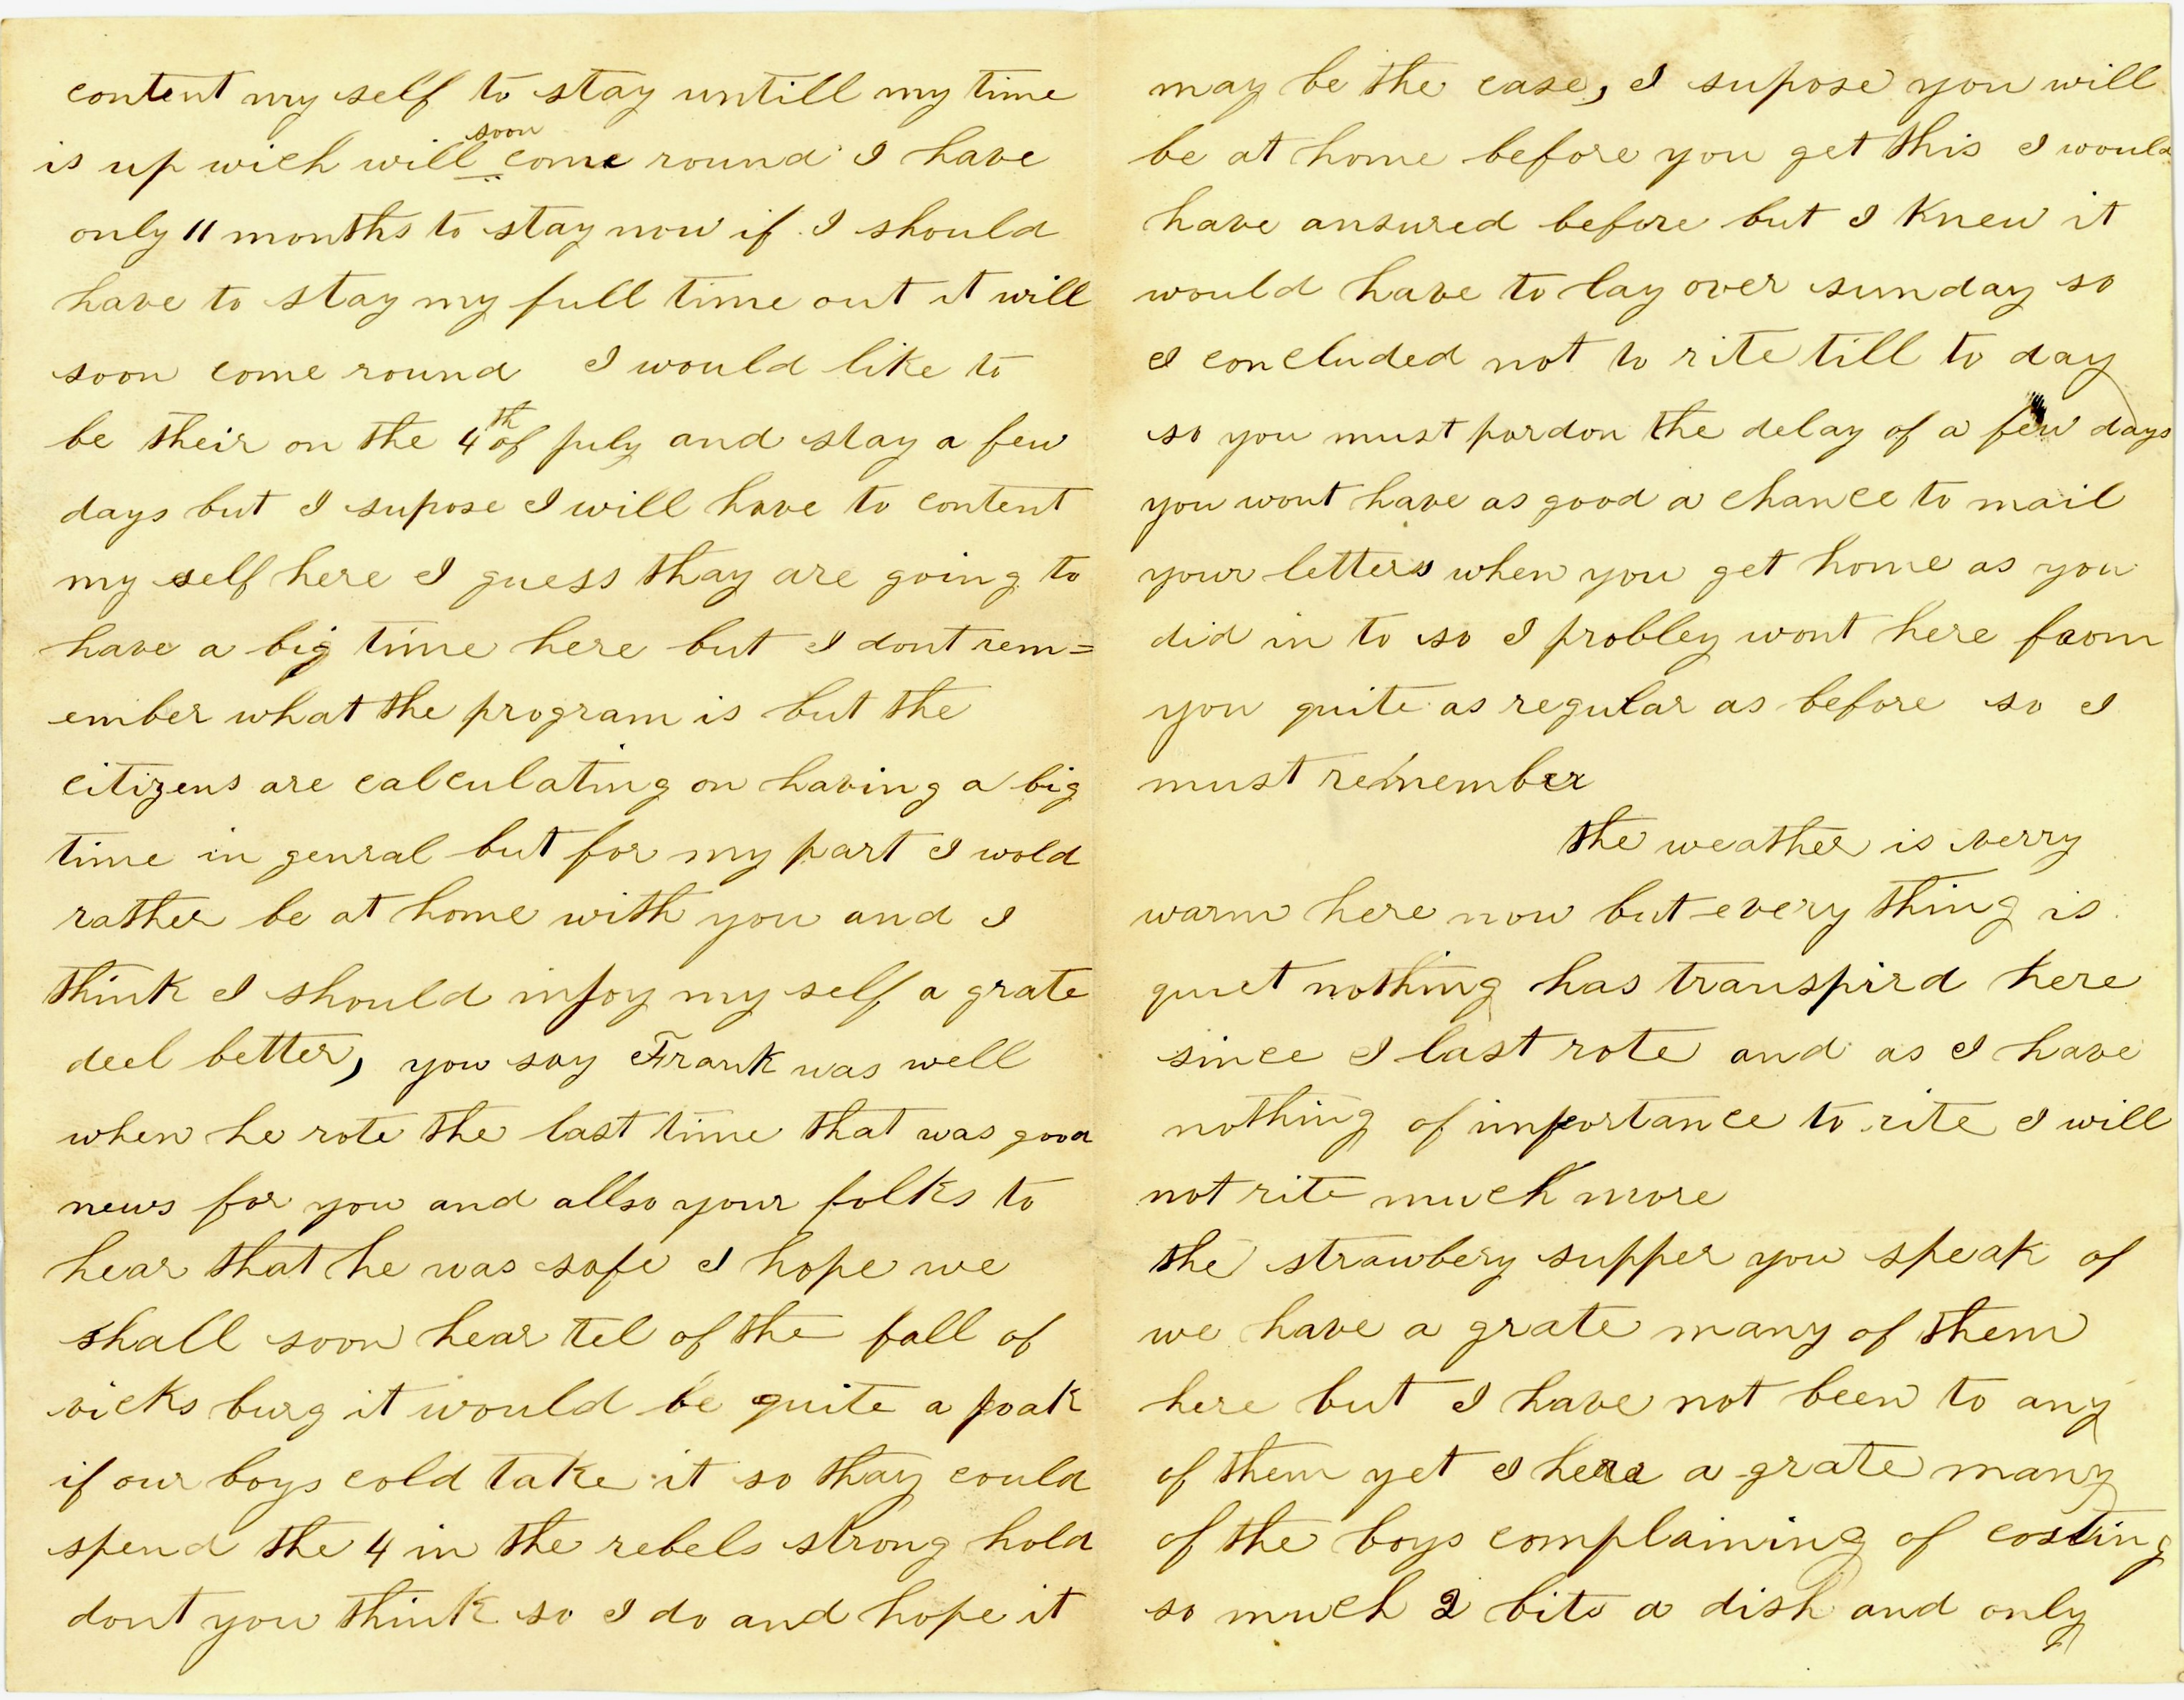 content my self to stay untill my time
is up wich will soon come round I have
only 11 months to stay now if I should
have to stay my full time out it will
soon come round I would like to
be their on the 4th of July and stay a few
days but I supose I will have to content
my self here I guess thay are going to
have a big time here but I dont rem=
ember what the program is but the
citizens are calculating on having a big
time in genral but for my part I wold
rather be at home with you and I
think I should injoy my self a grate
deel better, you say Frank was well
when he rote the last time that was good
news for you and allso your folks to
hear that he was safe I hope we
shall soon hear tel of the fall of
vicks burg it would be quite a joak
if our boys cold take it so thay could
spend the 4 in the rebels strong hold
dont you think so I do and hope it
may be the case, I supose you will
be at home before you get this I would
have ansured before but I knew it
would have to lay over sunday so
I concluded not to rite till to day
so you must pardon the delay of a few days
you wont have as good a chance to mail
your letters when you get home as you
did in to so I probley wont here from
you quite as regular as before so I
must remember
the weather is verry
warm here now but every thing is
quiet nothing has transpird here
since I last rote and as I have
nothing of importance to rite I will
not rite much more
the strawbery supper you speak of
we have a grate many of them
here but I have not been to any
of them yet I here a grate many
of the boys complaining of costing
so much 2 bits a dish and only